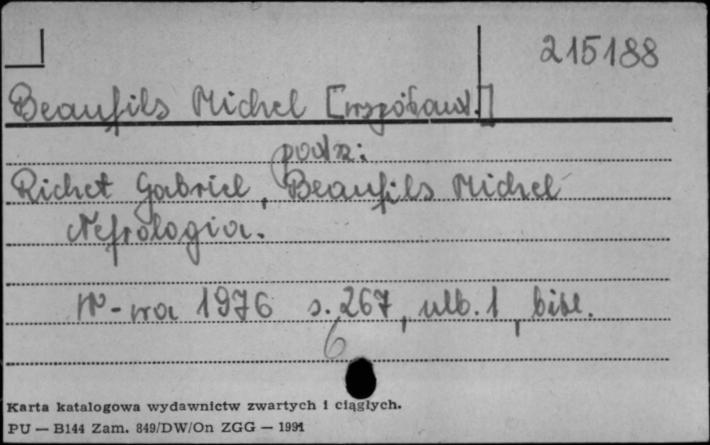 215188
Beaufils Michel [współaut.]
podz:
Richet Gabriel, Beaufils Michel
Nefrologia.
W-wa 1976 s. 267, ulb. 1, bibl.
6
Karta katalogowa wydawnictw zwartych i ciągłych.
PU — B144 Zam. 849/DW/On ZGG — 1991